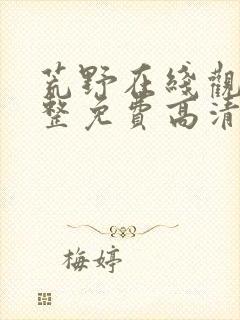 荒野在綫觀
整免費高清
梅婷